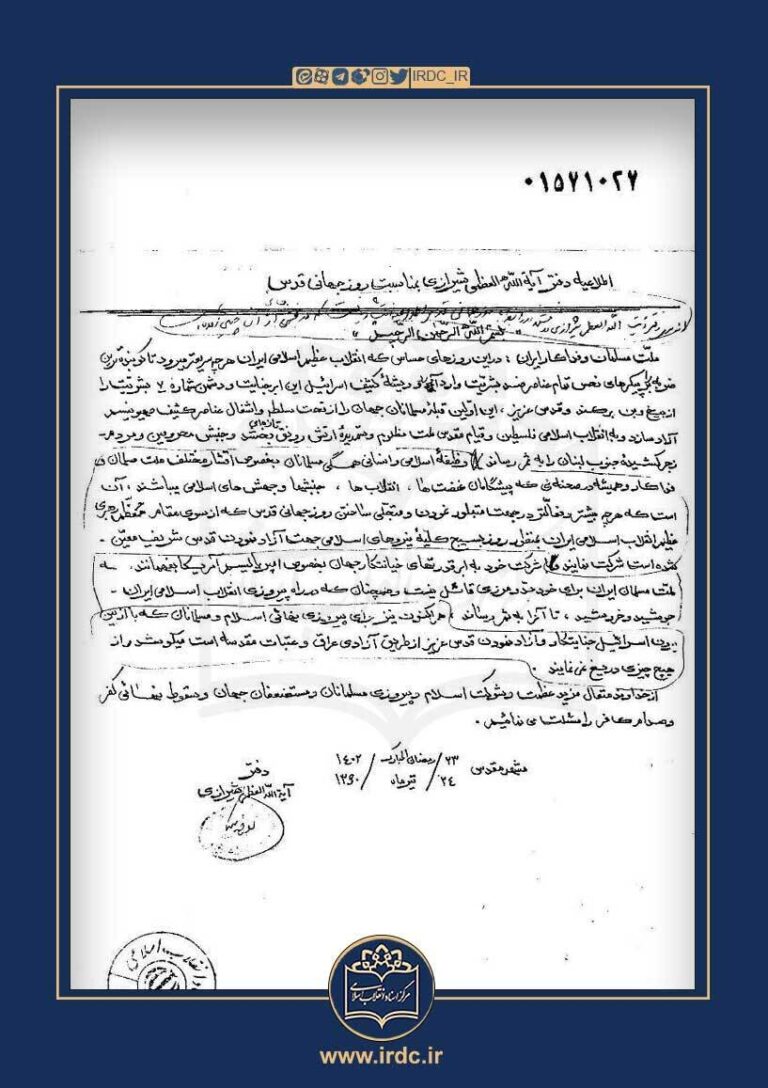 IRDC_IR
۰۱۵۷۱۰۲۷
اطلاعیه دفتر آیة اللّه العظمی شیرازی بمناسبت روز جهانی قدس
بسم اللّه الرحمن الرحیم
ملّت مسلمان و فداکار ایران : در این روزهای حساس که انقلاب عظیم اسلامی ایران هر چه سریعتر میرود تا کوبنده‌ترین
ضربه را بر پیکرهای نحس تمام عناصر ضد بشریت وارد آورد و ریشهٔ کثیف اسرائیل این ابرجنایت و دشمن شماره ۱ بشریت را
از بیخ و بن برکند و قدس عزیز ، این اولین قبلهٔ مسلمانان جهان را از تحت سلطه و اشغال عناصر کثیف صهیونیسم
آزاد سازد و به انقلاب اسلامی فلسطین و قیام مقدس ملت مظلوم و رونق تازه‌ای بخشد و جنبش محرومین و مردم
زجر کشیدهٔ جنوب لبنان را به ثمر رساند وظیفهٔ اسلامی و انسانی همگی مسلمانان بخصوص اقشار مختلف ملت مسلمان و
فداکار و همیشه در صحنه‌ی که پیشگامان نهضت‌ها ، انقلاب‌ها ، جنبشها و جهش‌های اسلامی میباشند ، آن
است که هر چه بیشتر و فعالتر در جهت متبلور نمودن و متجلی ساختن روز جهانی قدس که از سوی مقام معظم رهبری
عظیم انقلاب اسلامی ایران بعنوان روز بسیج کلیهٔ نیروهای اسلامی جهت آزاد نمودن قدس شریف معین
شده است شرکت نمایند شرکت خود به ابرقدرتهای خیانتکار جهان بخصوص امپریالیسم آمریکا بفهمانند . که
ملت مسلمان ایران برای خود حد و مرزی قائل نیست و همچنان که در راه پیروزی انقلاب اسلامی ایران
جوشید و خروشید ، تا آنرا به ثمر رساند ، هم اکنون نیز برای پیروزی نهائی اسلام و مسلمانان که با از بین
بردن اسرائیل جنایتکار و آزاد نمودن قدس عزیز از طریق آزادی عراق و عتبات مقدسه است میکوشد و از
هیچ چیزی دریغ نمی نمایند .
از خداوند متعال مزید عظمت و شوکت اسلام و پیروزی مسلمانان و مستضعفان جهان و سقوط نهائی کفر
و صدام کافر را مسئلت می نمائیم .
مشهد مقدس ۲۳ / رمضان المبارک / ۱۴۰۲
۲۴ / تیرماه / ۱۳۶۰
دفتر
آیة اللّه العظمی شیرازی
انقلاب اسلامی
مرکز اسناد انقلاب اسلامی
www.irdc.ir